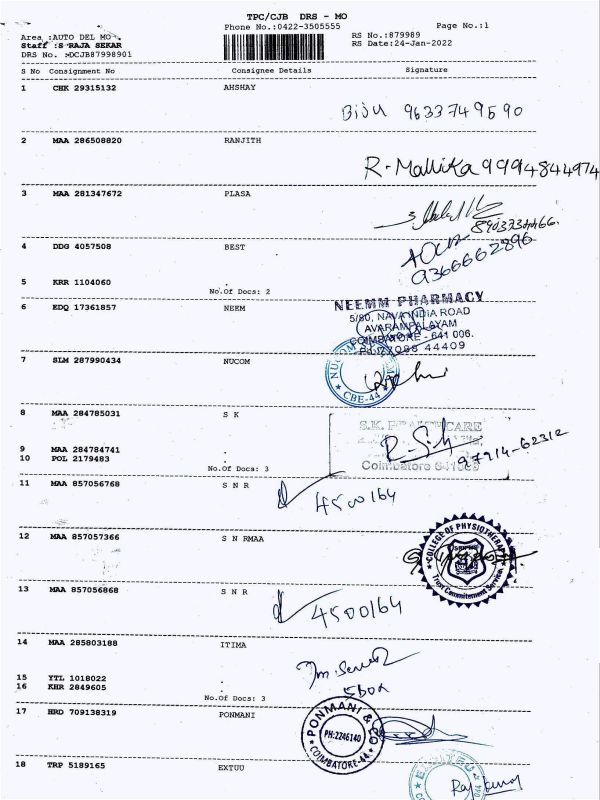 TPC/CJB DRS - MO
Phone No.:0422-3505555
Page No.:1
Area :AUTO DEL MO
Staff :S RAJA SEKAR
DRS No. :DCJB87998901
RS No.:879989
RS Date:24-Jan-2022
S No Consignment No Consignee Details Signature
1 CHK 29315132 AHSHAY
BIJU 9633749590
2 MAA 286508820 RANJITH
R-Mallika 9994844974
3 MAA 281347672 PLASA
4 DDG 4057508 BEST
9366662896
5 KRR 1104060 .
No.Of Docs: 2
6 EDQ 17361857 NEEM
NEEMM PHARMACY
5/80, NAVA INDIA ROAD
AVARAMPALAYAM
COIMBATORE - 641 006.
44409
7 SLM 287990434 NUCOM
NUCOM
CBE-44
8 MAA 284785031 S K
S.K. HEALTHCARE
9 MAA 284784741 .
97914-62312
10 POL 2179483 .
Coimbatore
No.Of Docs: 3
11 MAA 857056768 S N R
4500164
12 MAA 857057366 S N RMAA
COLLEGE OF PHYSIOTHERAPY
Trust Commitement Service
13 MAA 857056868 S N R
4500164
14 MAA 285803188 ITIMA
15 YTL 1018022 .
16 KHR 2849605 .
5box
No.Of Docs: 3
17 HRD 709138319 PONMANI
PONMANI & CO
PH:2246140
COIMBATORE-
18 TRP 5189165 EXTUU